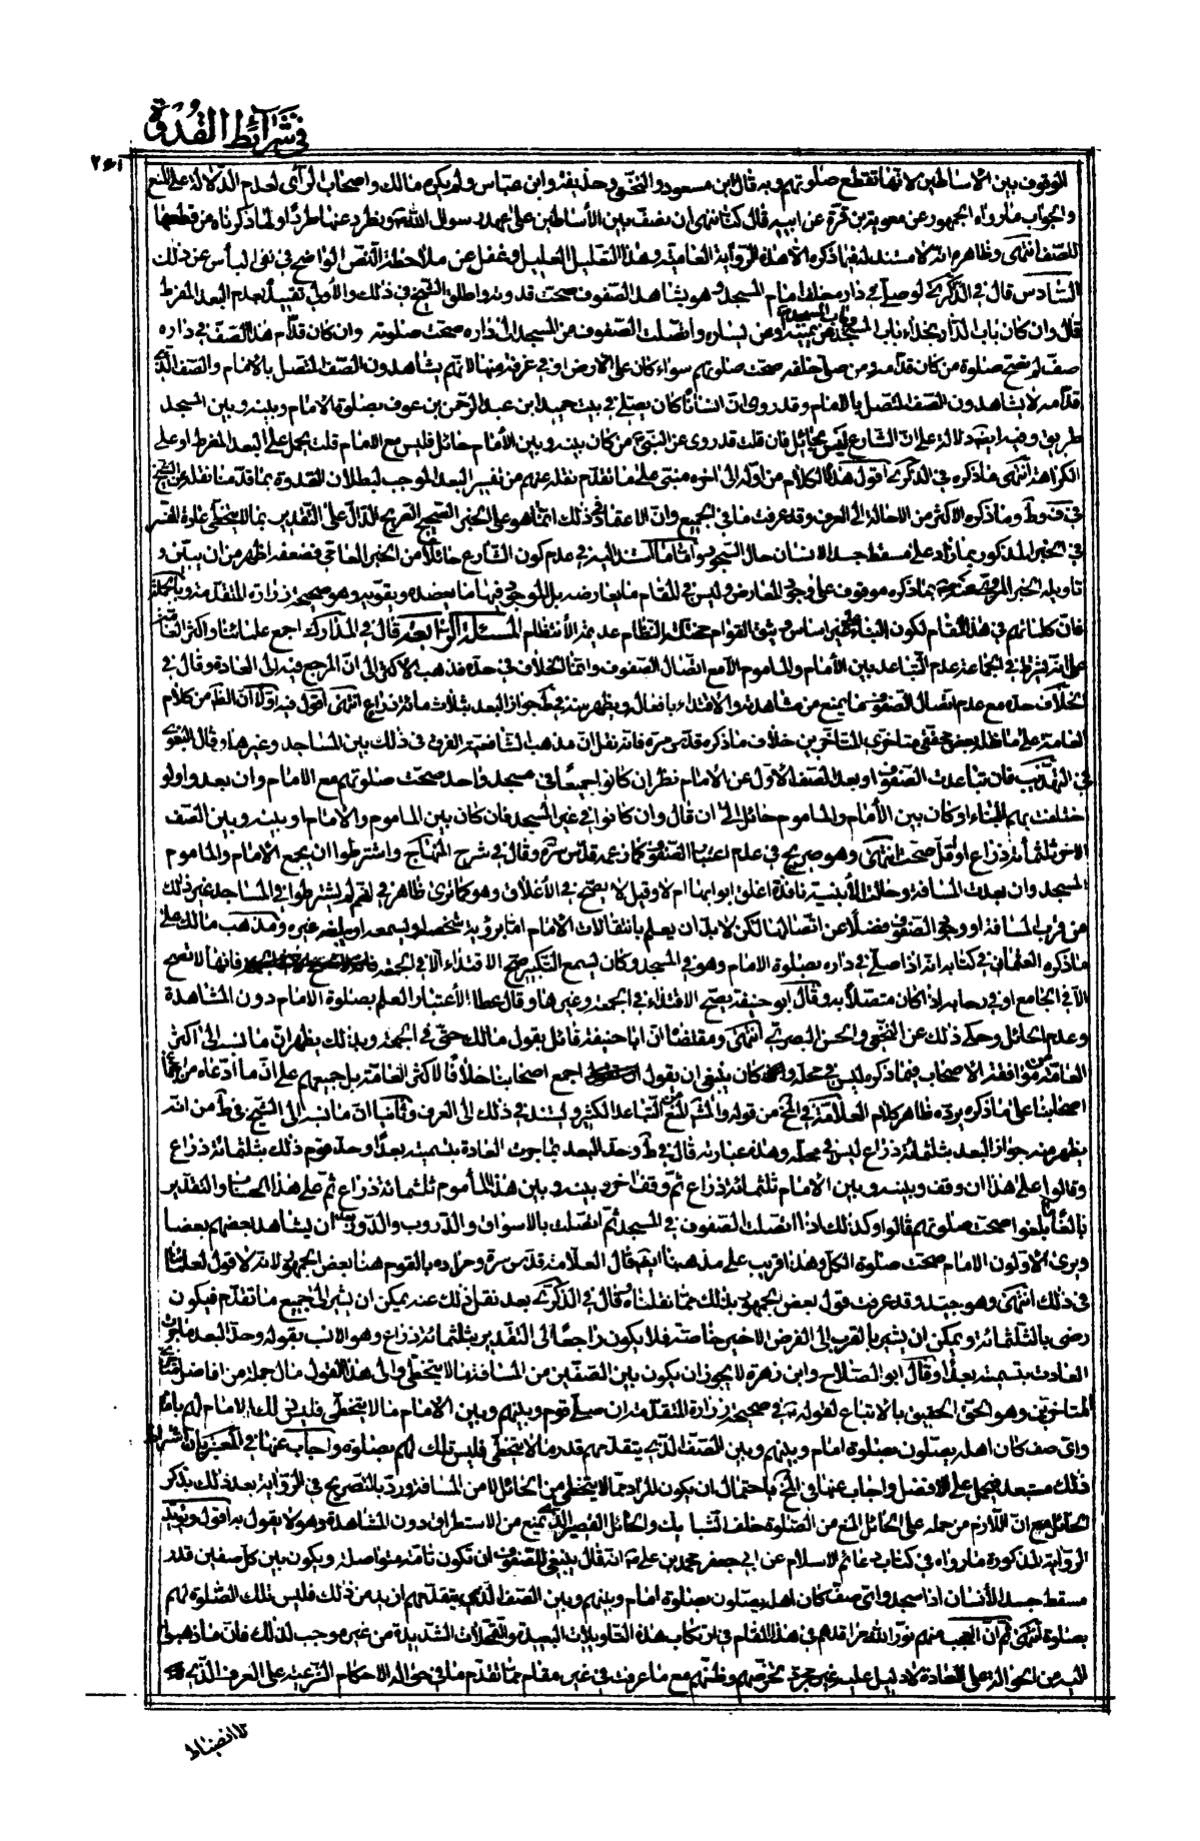 في شرائط القدوة
٢٤١
الوقوف بين الاساطين لانها تقطع صلوتهم وبه قال ابن مسعود والنخعي وحذيفة وابن عباس ولم يكره مالك واصحاب الرأي لعدم الدلالة على المنع
والجواب ما رواه الجمهور عن معوية بن قرة عن ابيه قال كنا ننهى ان نصف بين الأساطين على عهد رسول الله ونطرد عنها طردا ولما ذكرناه من قطعها
للصف انتهى وظاهره انه لا مستند له فيما ذكره الا هذه الرواية العامية وهذا التعليل العليل وغفل عن ملاحظة النص الواضح في نفي البأس عن ذلك
السادس قال في الذكرى لو صلى في دار خلف امام المسجد وهو يشاهد الصفوف صحت قدوته واطلق الشيخ في ذلك والأولى تقييده بعدم البعد المفرط
قال وان كان باب الدار بحذاء باب المسجد او باب المسجد عن يمينه او عن يساره واتصلت الصفوف من المسجد الى داره صحت صلوتهم وان كان قدام هذا الصف في داره
صف لم تصح صلوة من كان قدامه ومن صلى خلفه صحت صلوتهم سواء كان على الارض او في غرفة منها لانهم يشاهدون الصف المتصل بالامام والصف الذي
قدامه لا يشاهدون الصف المتصل بالامام وقد روى ان انسا كان يصلي في بيت حميد ابن عبد الرحمن بن عوف بصلوة الامام وبينه وبين المسجد
طريق وفيه ايضا دلالة على ان الشارع ليس بحائل فان قلت قد روى عن النبي من كان بينه وبين الأمام حائل فليس مع الامام قلت يحمل على البعد المفرط او على
الكراهة انتهى ما ذكره في الذكرى اقول هذا الكلام من اوله الى اخره مبني على ما تقدم نقله عنهم من تفسير البعد الموجب لبطلان القدوة بما قدمنا نقله عن الشيخ
في مبسوط وما ذكره الاكثر من الاحالة الى العرف وقد عرفت ما في الجميع وان الاعتماد في ذلك انما هو على الخبر الصحيح الصريح الدال على التقدير بما لا يتخطى
في الخبر المذكور بما زاد على مسقط جسد الانسان حال السجود واما ما استند اليه في عدم كون الشارع حائلا من الخبر العامي فضعفه اظهر من ان يبين و
تاويله الخبر المروي عنه بما ذكره موقوف على وجود المعارض وليس في المقام ما يعارضه بل الموجود فيها ما يعضده ويقويه وهو صحيحة زرارة المتقدمة وبالجملة
فان كلماتهم في هذا المقام لكون البناء على غير اساس وثيق القوام مختلة النظام عديمة الأنتظام المسئلة الرابعة قال في المدارك اجمع علمائنا واكثر العامة
على انه يشترط في الجماعة عدم التباعد بين الأمام والماموم الا مع اتصال الصفوف وانما الخلاف في حده فذهب الاكثر الى ان المرجع فيه الى العادة وقال في
الخلاف حده مع عدم اتصال الصفوف ما يمنع من مشاهدته والاقتداء بافعاله ويظهر منه في ط جواز البعد بثلاث مائة ذراع انتهى اقول فيه اولا ان الظ من كلام
العامة على ما نقله بعض محققي متاخري المتاخرين خلاف ما ذكره قدس سره فانه نقل ان مذهب الشافعية الفرق في ذلك بين المساجد وغيرها وقال البغوي
في التهذيب فان تباعدت الصفوف او بعد الصف الأول عن الامام نظر ان كانوا جميعا في مسجد واحد صحت صلوتهم مع الامام وان بعدوا ولو
اختلفت بهم البناء او كان بين الأمام والماموم حائل الى ان قال وان كانوا في غير المسجد فان كان بين الماموم والامام او بينه وبين الصف
الاخر ثلثمائة ذراع او اقل صحت انتهى وهو صريح في عدم اعتبار الصفوف كما زعمه قدس سره وقال في شرح المنهاج واشترطوا ان يجمع الامام والماموم
المسجد وان بعدت المسافة وحالت الأبنية نافذة اغلق ابوابها ام لا وقيل لا يصح في الأغلاق وهو كما ترى ظاهر في انهم لم يشترطوا في المساجد غير ذلك
من قرب المسافة او وجود الصفوف فضلا عن اتصالها لكن لا بد ان يعلم بانتقالات الامام اما برؤية شخصه او يسمعه او يبلغه غيره ومذهب مالك على
ما ذكره العثماني في كتابه انه اذا صلى في داره بصلوة الامام وهو في المسجد وكان يسمع التكبير صح الاقتداء الا في الجمعة فانها لا تصح
الا في الجامع او في رحابه اذا كان متصلا به وقال ابو حنيفة يصح الاقتداء في الجمعة وغيرها وقال عطا الأعتبار العلم بصلوة الامام دون المشاهدة
وعدم الحائل وحكى ذلك عن النخعي والحسن البصري انتهى ومقتضاه ان ابا حنيفة قائل بقول مالك حتى في الجمعة وبذلك يظهر ان ما نسبه الى اكثر
العامة من موافقة الاصحاب فيما ذكره ليس في محله وانه كان ينبغي ان يقول اجمع اصحابنا خلافا لاكثر العامة بل جميعهم على ان ما ادعاه من اجماع
اصحابنا على ما ذكره يرده ظاهر كلام العلامة في المخ من قوله والمشهور المنع التباعد الكثير واستند في ذلك الى العرف وثانيا ان ما نسبه الى الشيخ في ط من انه
يظهر منه جواز البعد بثلثمائة ذراع ليس في محله وهذه عبارته قال في ط وحد البعد بما جرت العادة بتسميته بعدا وحد قوم ذلك بثلثمائة ذراع
وقالوا على هذا ان وقف وبينه وبين الامام ثلثمائة ذراع ثم وقف اخر وبينه وبين هذا المأموم ثلثمائة ذراع ثم على هذا الحساب والتقدير
بالغا ما بلغوا صحت صلوتهم قالوا وكذلك اذا اتصلت الصفوف في المسجد ثم اتصلت بالاسواق والدروب والدور بعد ان يشاهد بعضهم بعضا
ويرى الاولون الامام صحت صلوة الكل وهذا قريب على مذهبنا ايضا قال العلامة قدس سره ومراده بالقوم هنا بعض الجمهور لانه لا قول لعلمائنا
في ذلك انتهى وهو جيد وقد عرفت قول بعض الجمهور بذلك مما نقلناه وقال في الذكرى بعد نقل ذلك عنه يمكن ان يشير الى جميع ما تقدم فيكون
رضى بالثلثمائة ويمكن ان يشير بالقرب الى الفرض الاخير خاصة فلا يكون راجعا الى التقدير بثلثمائة ذراع وهو الانسب بقوله وحد البعد ما جرت
العادة بتسميته بعدا وقال ابو الصلاح وابن زهرة لا يجوز ان يكون بين الصفين من المسافة ما لا يتخطى والى هذا القول مال جملة من افاضل متاخري
المتاخرين وهو الحق الحقيق بالاتباع لقوله في صحيحة زرارة المتقدمة ان صلى قوم وبينهم وبين الامام ما لا يتخطى فليس ذلك الامام لهم بامام
واي صف كان اهله يصلون بصلوة امام وبينهم وبين الصف الذي يتقدمهم قدر ما لا يتخطى فليس تلك لهم بصلوة واجاب عنها في المعتبر بان اشتراط
ذلك مستبعد فيحمل على الافضل واجاب عنها في المخ باحتمال ان يكون المراد ما لا يتخطى من الحائل لا من المسافة ورد بالتصريح في الرواية بعد ذلك بذكر
الحائل مع ان اللازم من حمله على الحائل المنع من الصلوة خلف الشبابيك والحائل القصير الذي يمنع من الاستطراق دون المشاهدة وهو لا يقول به اقول ويؤيد
الرواية المذكورة ما رواه في كتاب دعائم الاسلام عن ابي جعفر محمد بن علي انه قال ينبغي للصفوف ان تكون تامة متواصلة ويكون بين كل صفين قدر
مسقط جسد الأنسان اذا سجد واي صف كان اهله يصلون بصلوة امام وبينهم وبين الصف الذي يتقدمهم ازيد من ذلك فليس تلك الصلوة لهم
بصلوة انتهى ثم ان العجب منهم نور الله مراقدهم في هذا المقام في ارتكاب هذه التاويلات البعيدة والتمحلات الشديدة من غير موجب لذلك فان ما ذهبوا
اليه من الحوالة على العادة لا دليل عليه غير مجرد تخرصهم وظنهم مع ما عرفت في غير مقام مما تقدم ما في حوالة الاحكام الشرعية على العرف الذي
لا انضباط